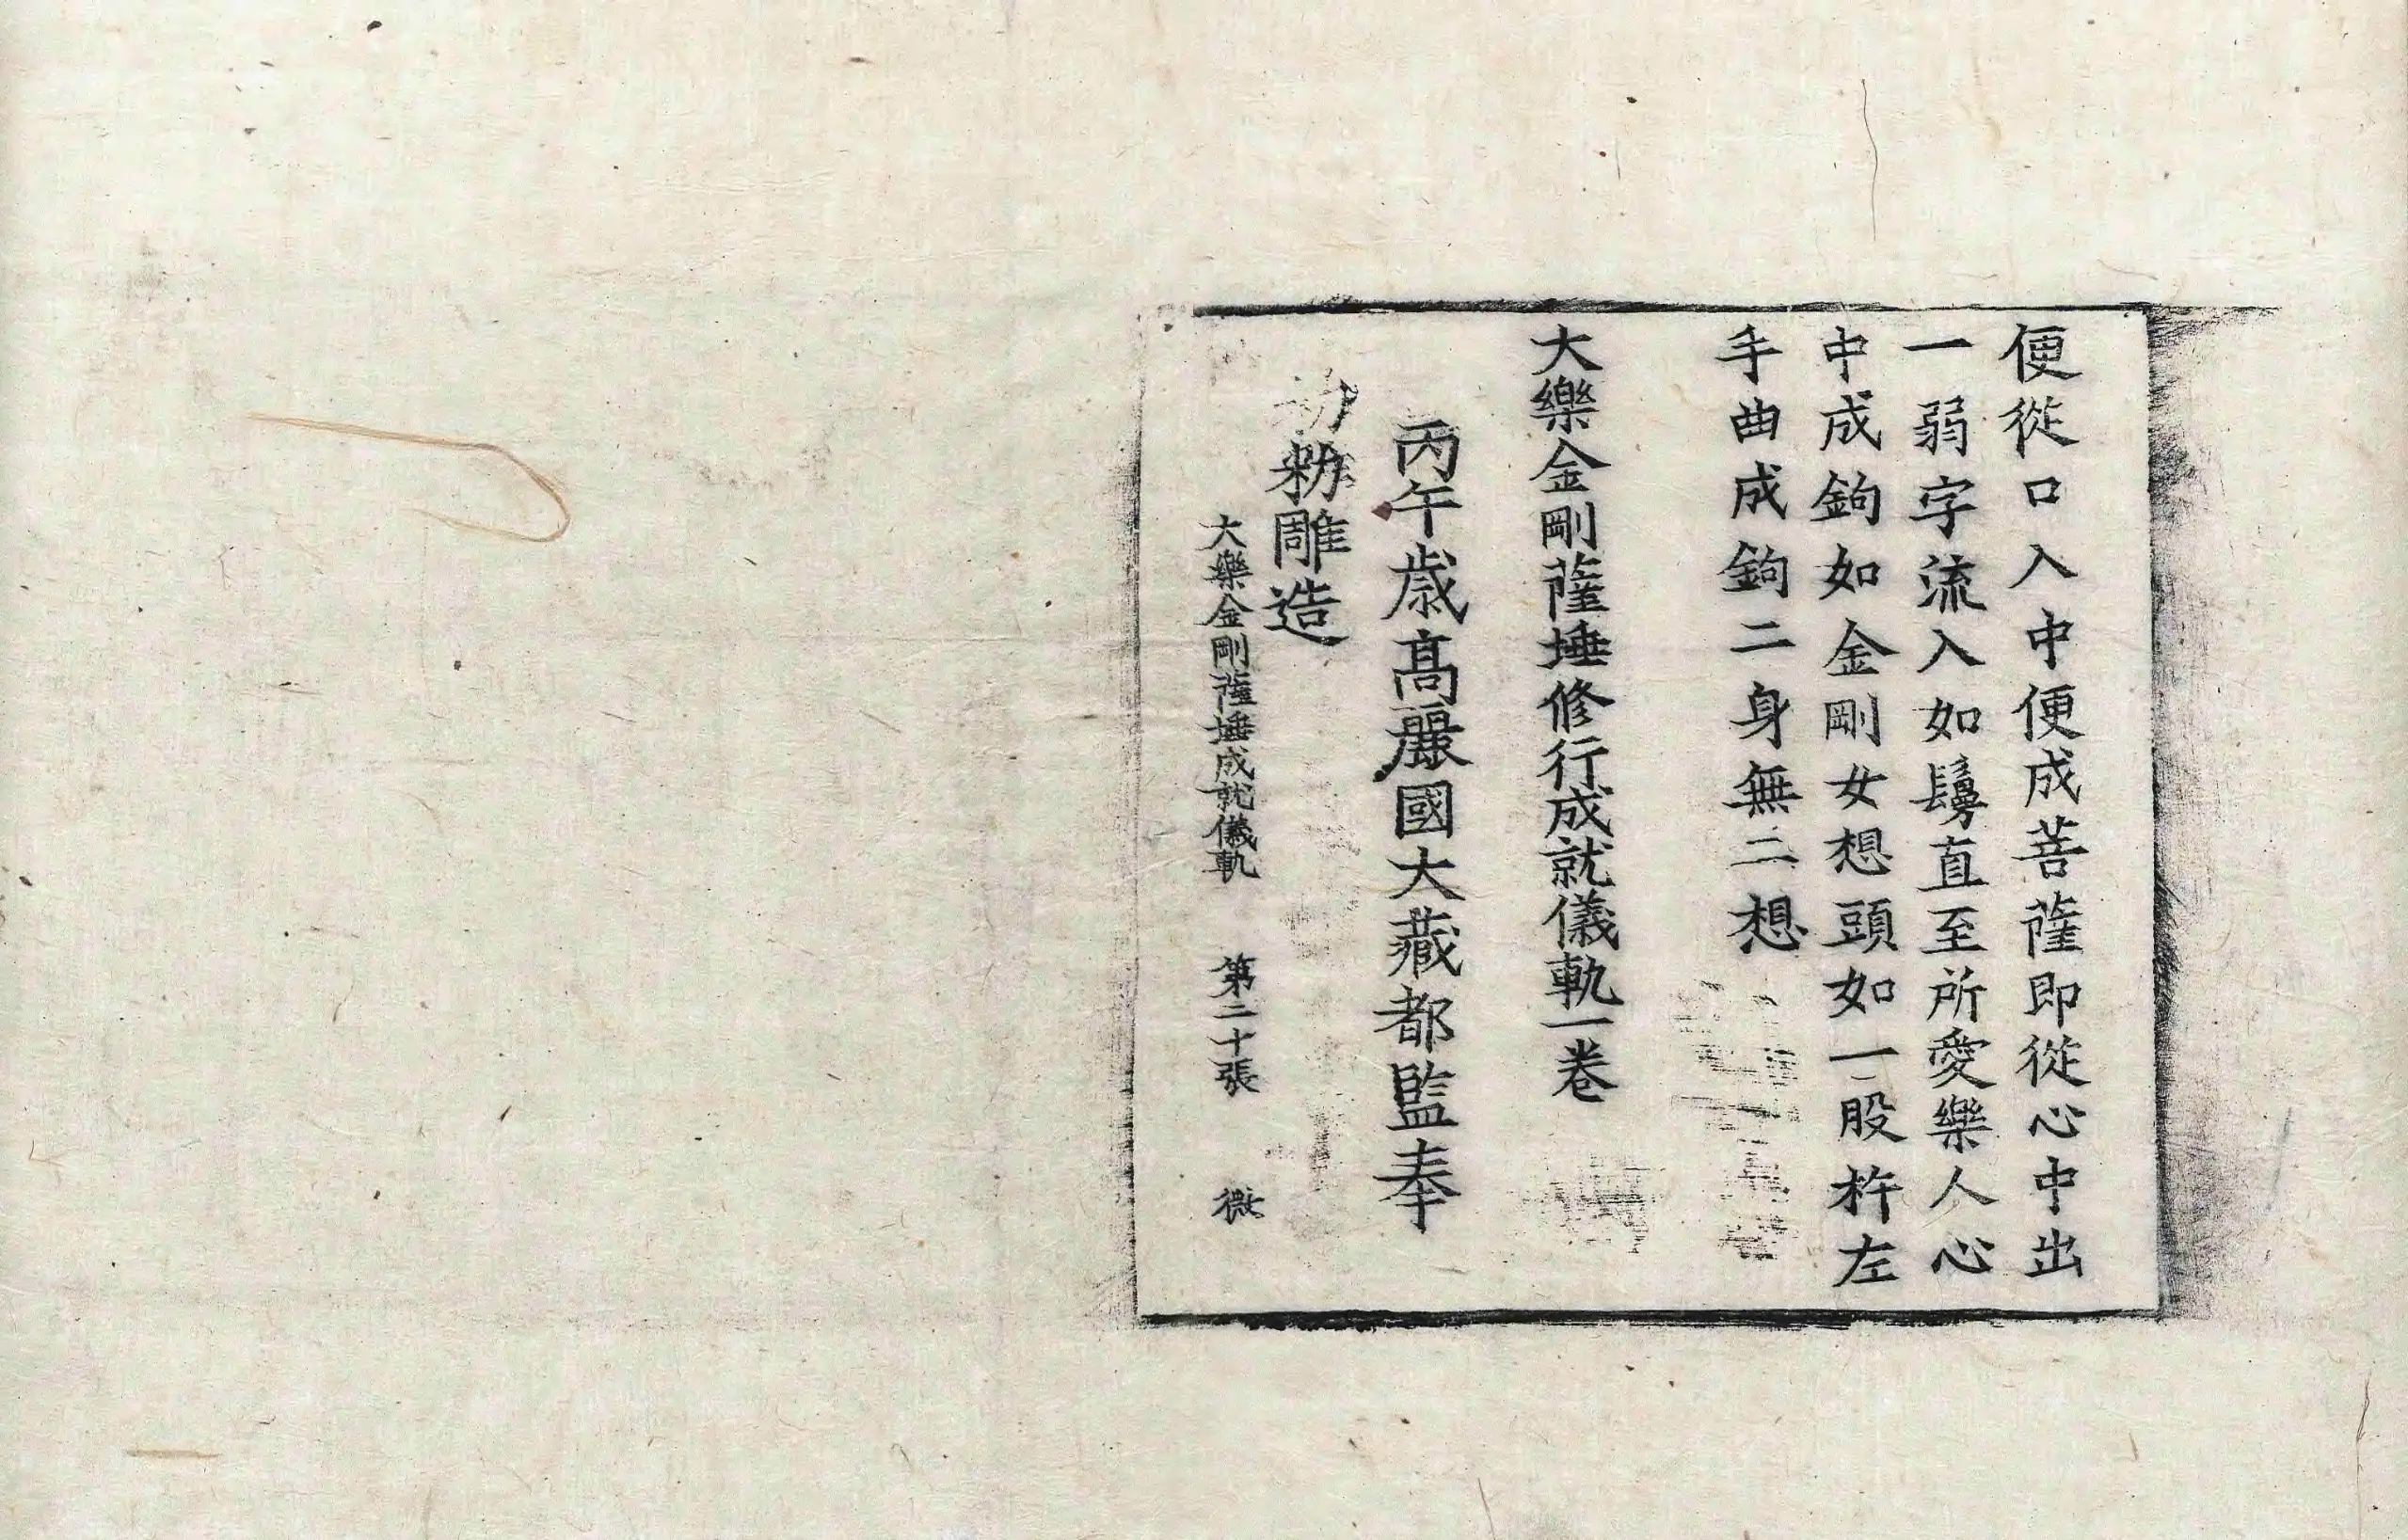 便從口入中便成菩薩即從心中出
一弱字流入如鬘直至所愛樂人心
中成鉤如金剛女想頭如一股杵左
手曲成鉤二身無二想
大樂金剛薩埵修行成就儀軌一卷
丙午歲高麗國大藏都監奉
勑雕造
大樂金剛薩埵成就儀軌 第二十張 微